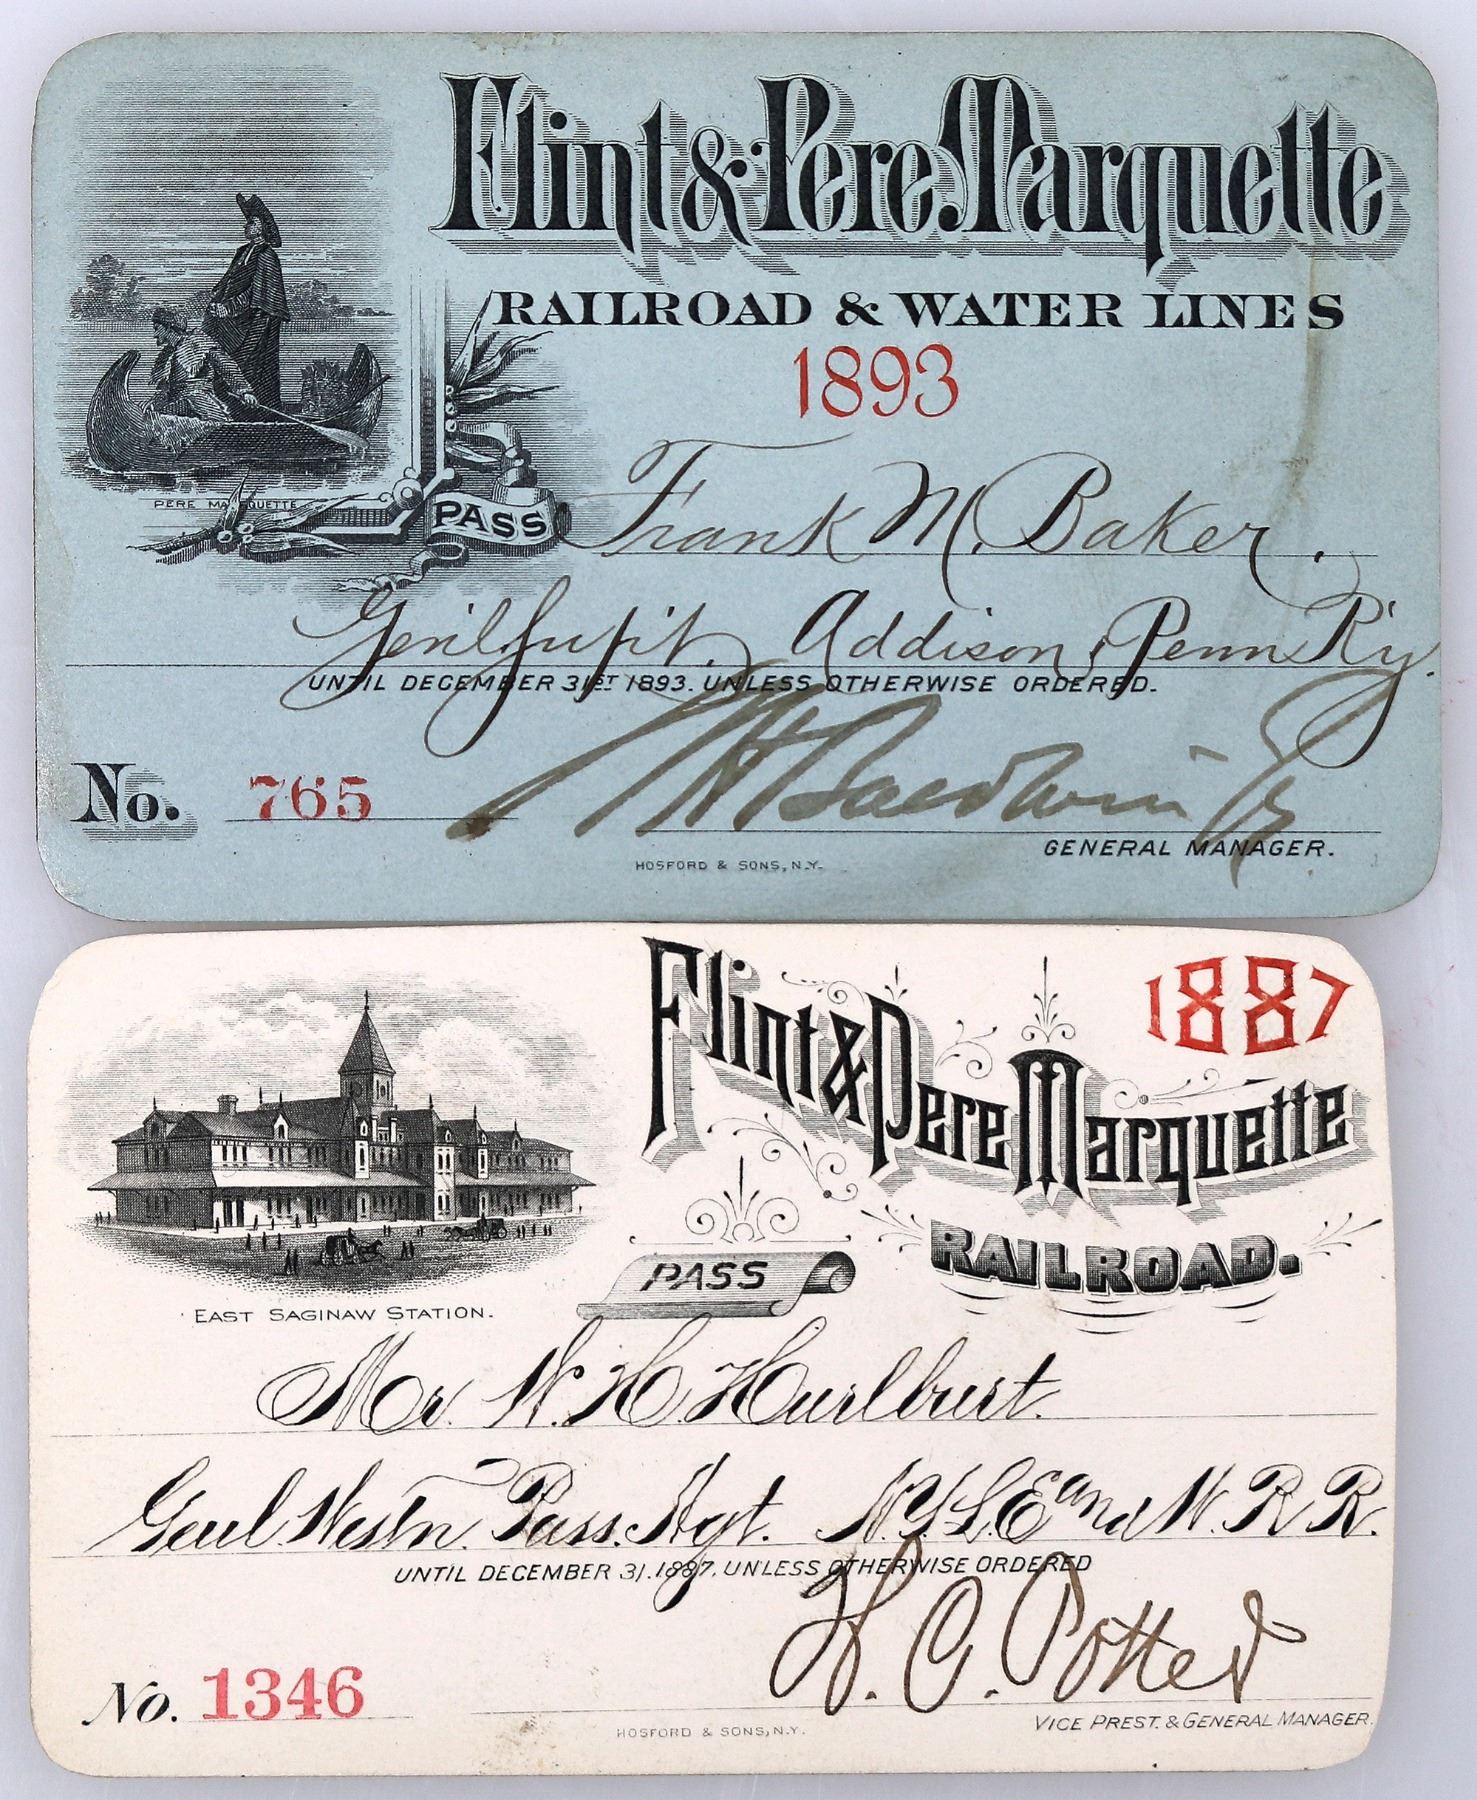 Flint & Pere Marquette
RAILROAD & WATER LINES
1893
PERE MARQUETTE
PASS
Frank M. Baker.
Gen'l. Sup't. Addison & Penn R'y.
UNTIL DECEMBER 31ST 1893. UNLESS OTHERWISE ORDERED.
No. 765
W H Baldwin Jr
GENERAL MANAGER.
HOSFORD & SONS, N.Y.
1887
Flint & Pere Marquette
RAILROAD.
PASS
EAST SAGINAW STATION.
Mr. W. H. Hurlburt.
Genl. Westn. Pass. Agt. N.Y.L.E. and W. R R.
UNTIL DECEMBER 31. 1887. UNLESS OTHERWISE ORDERED
No. 1346
W. C. Potter
VICE PREST. & GENERAL MANAGER.
HOSFORD & SONS, N.Y.